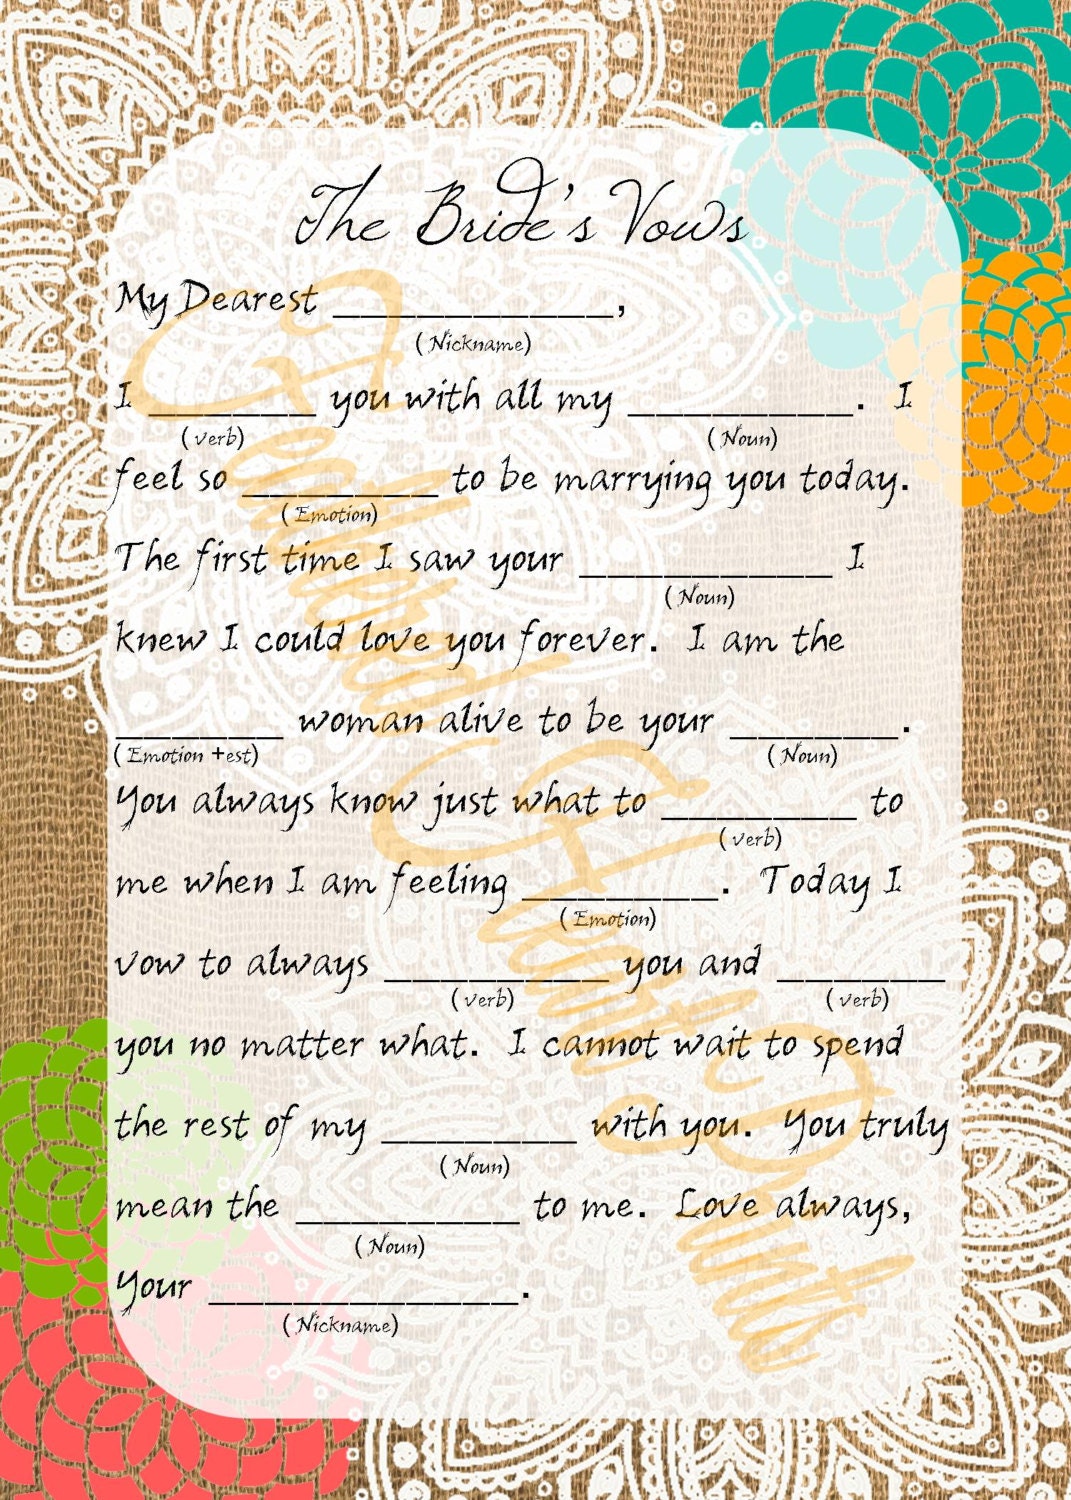 The Bride's Vows
My Dearest __________,
(Nickname)
I ______ you with all my ________. I
(verb) (Noun)
feel so _______ to be marrying you today.
(Emotion)
The first time I saw your _________ I
(Noun)
knew I could love you forever. I am the
______ woman alive to be your ______.
(Emotion +est) (Noun)
You always know just what to _______ to
(verb)
me when I am feeling _______. Today I
(Emotion)
vow to always ________ you and ______
(verb) (verb)
you no matter what. I cannot wait to spend
the rest of my _______ with you. You truly
(Noun)
mean the ________ to me. Love always,
(Noun)
Your ___________.
(Nickname)